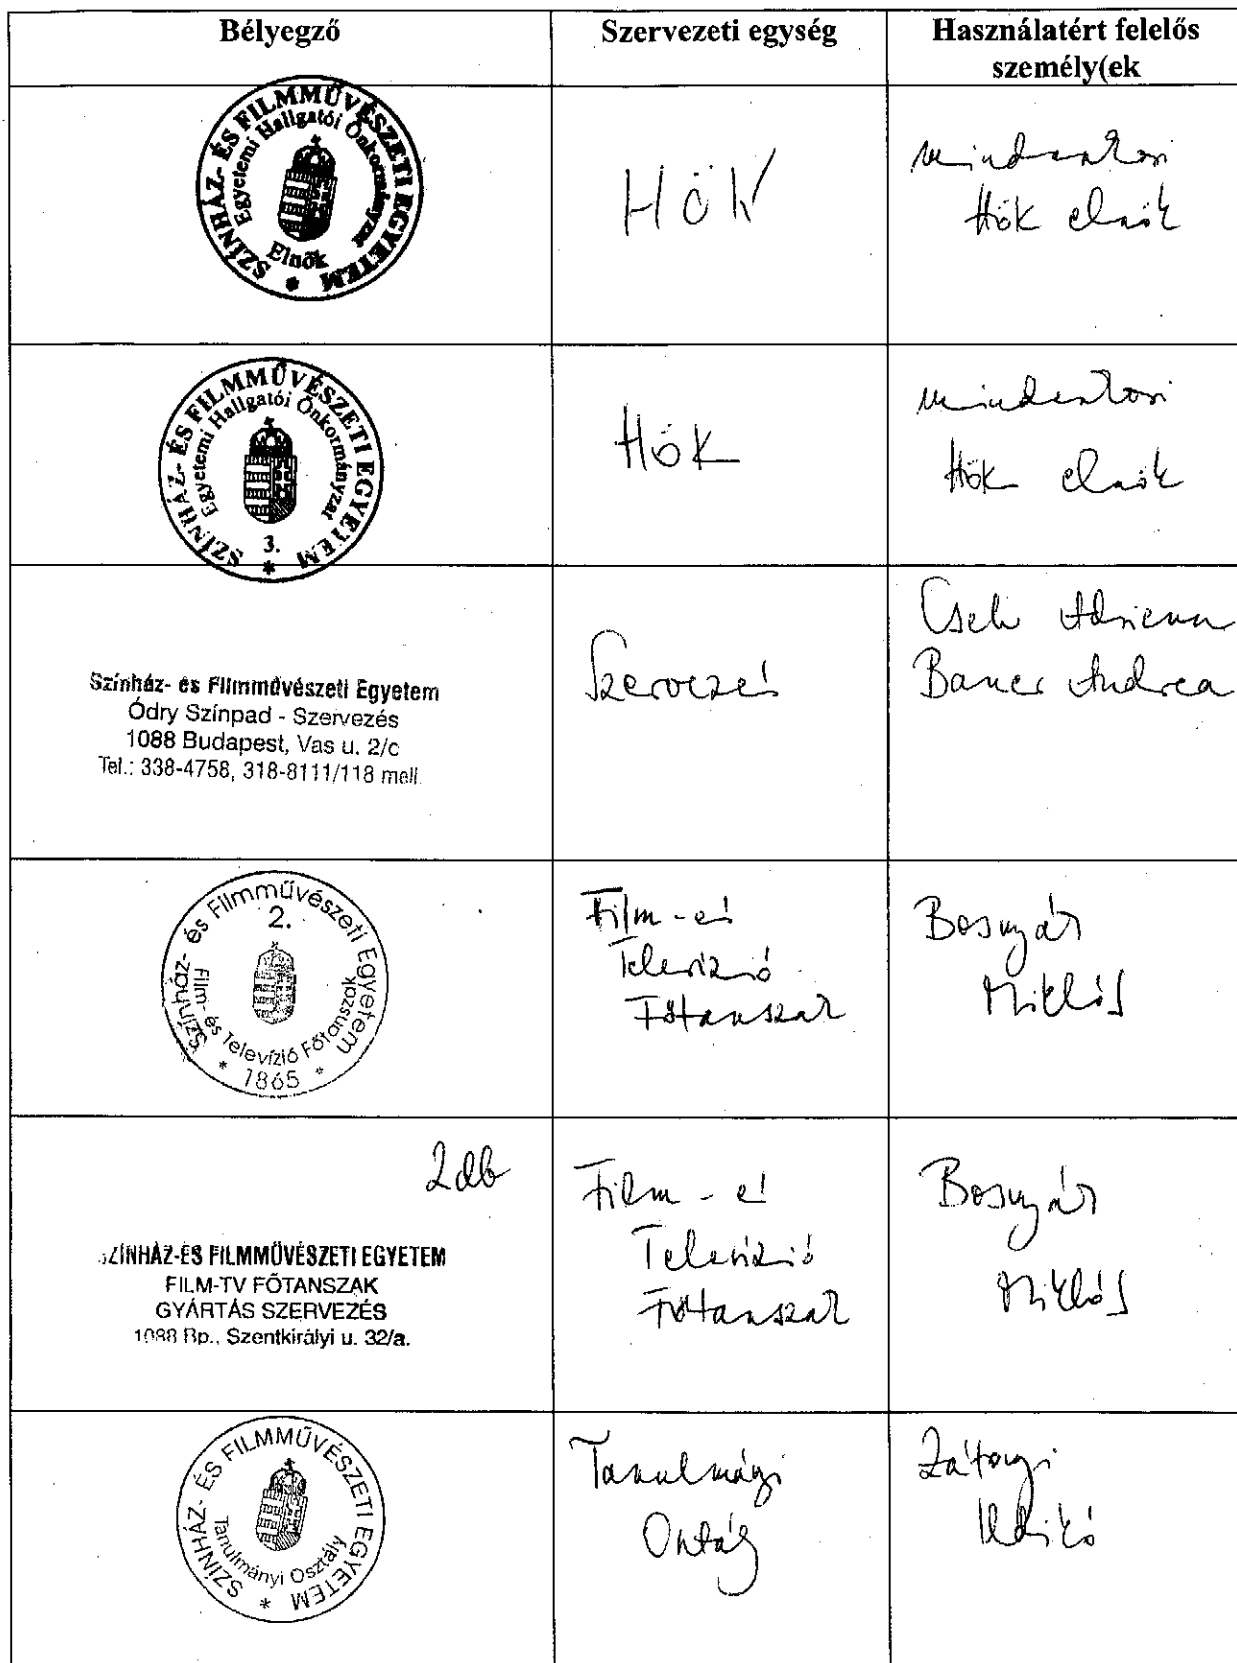 Bélyegző
Szervezeti egység
Használatért felelős
személy(ek
SZÍNHÁZ- ÉS FILMMŰVÉSZETI EGYETEM *
Egyetemi Hallgatói Önkormányzat
Elnök
HÖK
mindenkori
Hök elnök
SZÍNHÁZ- ÉS FILMMŰVÉSZETI EGYETEM *
Egyetemi Hallgatói Önkormányzat
3.
HöK
mindenkori
Hök elnök
Színház- és Filmművészeti Egyetem
Ódry Színpad - Szervezés
1088 Budapest, Vas u. 2/c
Tel.: 338-4758, 318-8111/118 mell.
Szervezés
Cseh Adrienn
Bauer Andrea
Színház- és Filmművészeti Egyetem
2.
Film- és Televízió Főtanszak
* 1865 *
Film - és
Televízió
Főtanszak
Bosnyák
Miklós
2db
SZÍNHÁZ-ÉS FILMMŰVÉSZETI EGYETEM
FILM-TV FŐTANSZAK
GYÁRTÁS SZERVEZÉS
1088 Bp., Szentkirályi u. 32/a.
Film - és
Televízió
Főtanszak
Bosnyák
Miklós
SZÍNHÁZ- ÉS FILMMŰVÉSZETI EGYETEM *
Tanulmányi Osztály
Tanulmányi
Osztály
Zátonyi
Ildikó